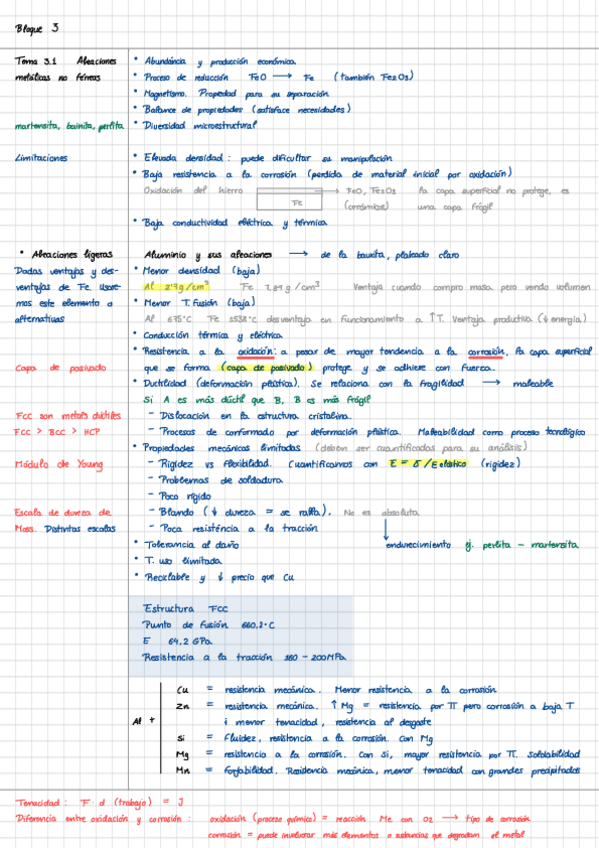 Bloque 3
Tema 3.1 Aleaciones
metálicas no férreas
• Abundancia y producción económica
• Proceso de reducción FeO → Fe (también Fe2O3)
• Magnetismo. Propiedad para su separación
• Balance de propiedades (satisface necesidades)
martensita, bainita, perlita
• Diversidad microestructural
Limitaciones
• Elevada densidad: puede dificultar su manipulación
• Baja resistencia a la corrosión (perdida de material inicial por oxidación)
Oxidación del hierro
Fe
→ FeO, Fe2O3 la capa superficial no protege, es
(cerámicos) una capa frágil
• Baja conductividad eléctrica y térmica
• Aleaciones ligeras
Aluminio y sus aleaciones → de la bauxita, plateado claro
Dadas ventajas y des-
ventajas de Fe, usare-
mos este elemento o
alternativas
• Menor densidad (baja)
Al 2'7 g/cm³ Fe 7.87 g/cm³ Ventaja cuando compro masa, pero vendo volumen
• Menor T. fusión (baja)
Al 675°C Fe 1538°C desventaja en funcionamiento a ↑T. Ventaja productiva (↓ energía)
• Conducción térmica y eléctrica
• Resistencia a la oxidación: a pesar de mayor tendencia a la corrosión, la capa superficial
Capa de pasivado
que se forma (capa de pasivado) protege y se adhiere con fuerza.
• Ductilidad (deformación plástica). Se relaciona con la fragilidad → maleable
Si A es más dúctil que B, B es más frágil
FCC son metales dúctiles
FCC > BCC > HCP
- Dislocación en la estructura cristalina.
- Procesos de conformado por deformación plástica. Maleabilidad como proceso tecnológico
• Propiedades mecánicas limitadas (deben ser cuantificadas para su análisis)
Módulo de Young
- Rigidez vs flexibilidad. Cuantificamos con E = σ/E elástico (rigidez)
- Problemas de soldadura
- Poco rígido
Escala de dureza de
Moss. Distintas escalas
- Blando (↓ dureza = se ralla). No es absoluta
- Poca resistencia a la tracción
• Tolerancia al daño
endurecimiento ej. perlita - martensita
• T. uso limitada
• Reciclable y ↓ precio que Cu
Estructura FCC
Punto de fusión 660.2°C
E 64.2 GPa
Resistencia a la tracción 160 - 200MPa
Al +
Cu = resistencia mecánica. Menor resistencia a la corrosión
Zn = resistencia mecánica. ↑ Mg = resistencia por TT pero corrosión a baja T
i menor tenacidad, resistencia al desgaste
Si = Fluidez, resistencia a la corrosión. Con Mg
Mg = resistencia a la corrosión. Con Si, mayor resistencia por TT. Soldabilidad
Mn = Forjabilidad. Resistencia mecánica, menor tenacidad con grandes precipitados
Tenacidad: F · d (trabajo) = J
Diferencia entre oxidación y corrosión: oxidación (proceso químico) = reacción Me con O2 → tipo de corrosión
corrosión = puede involucrar más elementos o sustancias que degradan el metal